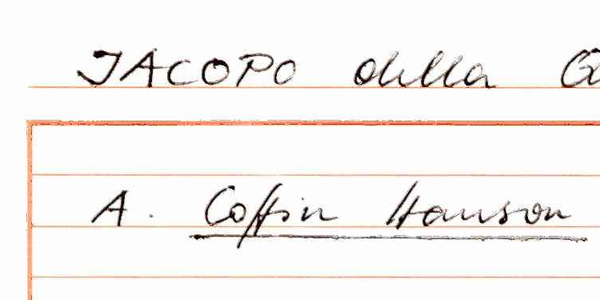 JACOPO della
A. Coffin Hanson